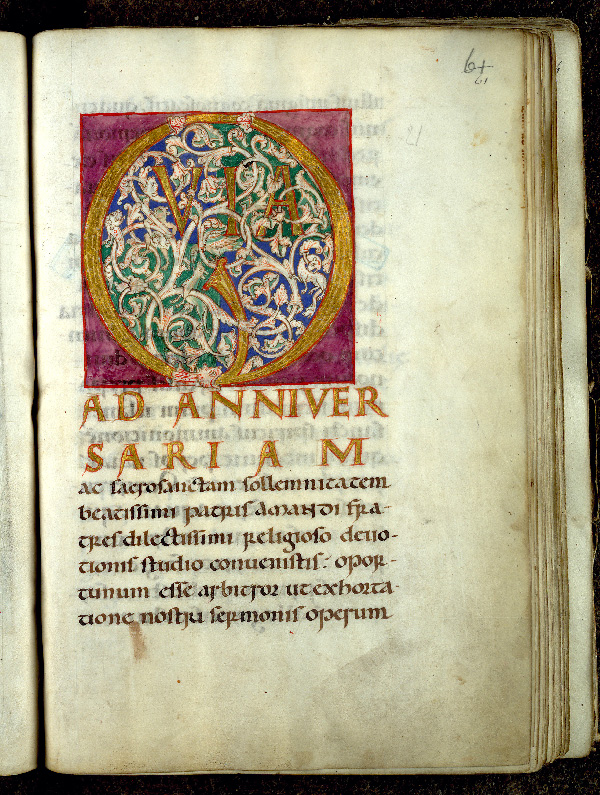 64
QVIA
AD ANNIVER
SARIAM
ac sacrosanctam sollemnitatem
beatissimi patris amandi fra-
tres dilectissimi religioso deuo-
tionis studio conuenistis: opor-
tunum esse arbitror ut exhorta-
tione nostri sermonis operum